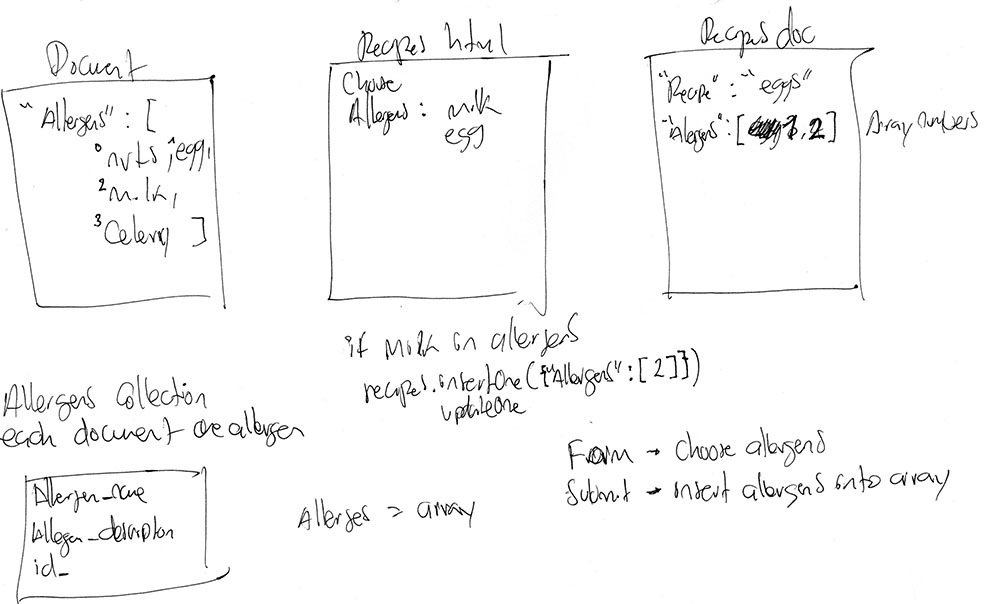 Document
"Allergens" : [
0 nuts, 1 egg,
2 milk,
3 Celery ]
Recipes html
Choose
Allergens : milk
egg
Recipes doc
"Recipe" : "eggs"
"Alergens" : [ 1, 2 ]
Array numbers
if milk in allergens
recipes.insertOne({"Allergens" : [ 2 ]})
updateOne
Allergens Collection
each document one allergen
Allergen_name
Allergen_description
id_
Allerges = array
Form → Choose allergens
Submit → insert allergens into array